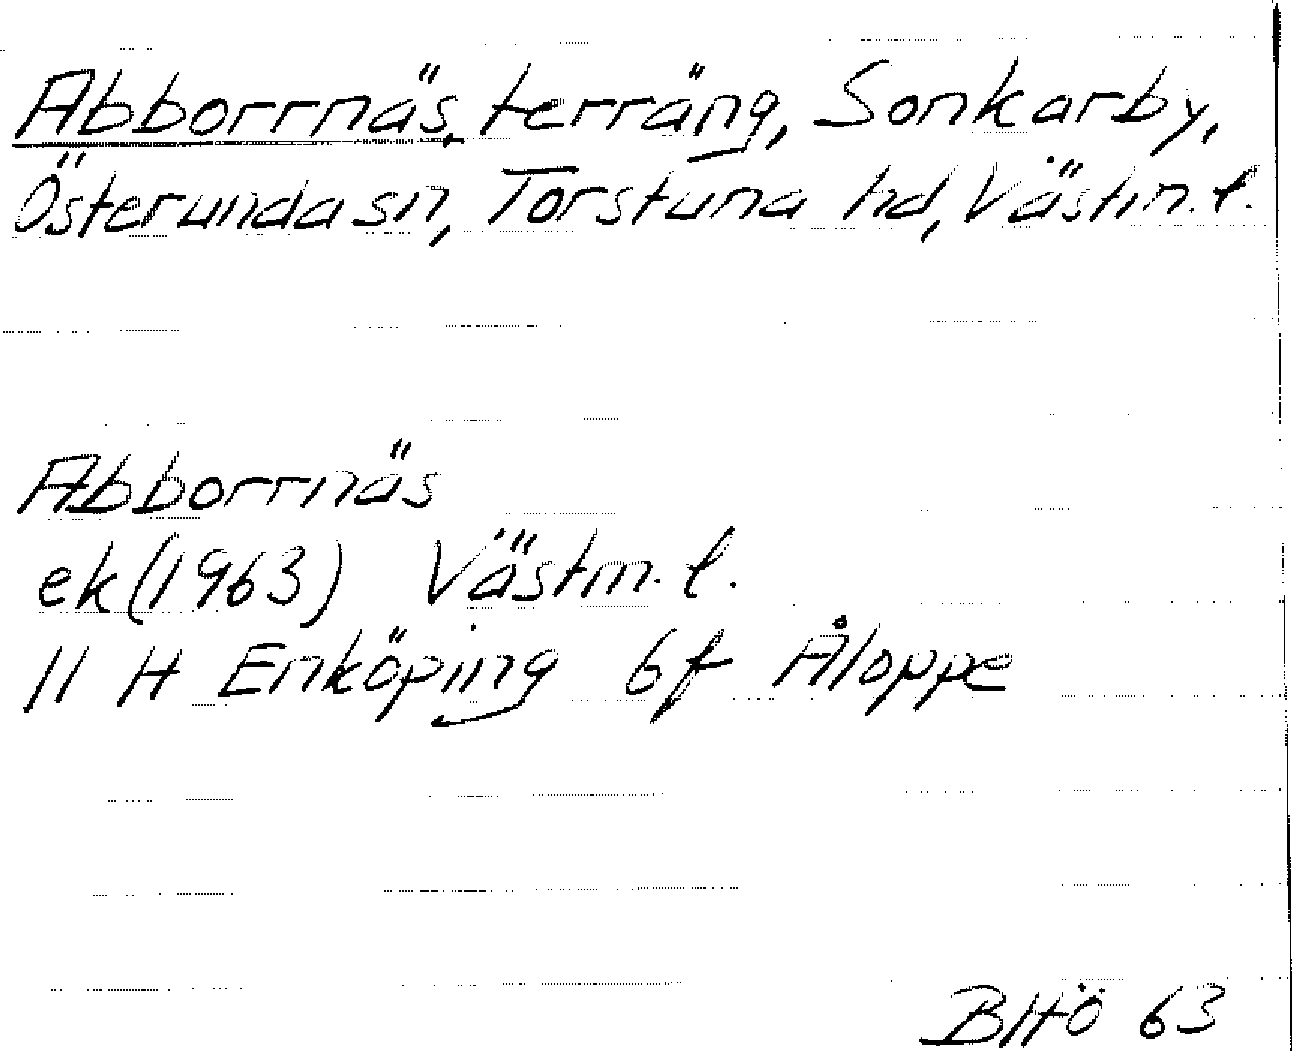 Abborrnäs, terräng, Sonkarby,
Österunda sn, Torstuna hd, Västm.l.
Abborrnäs
ek (1963) Västm.l.
11 H Enköping 6f Åloppe
BHÖ 63